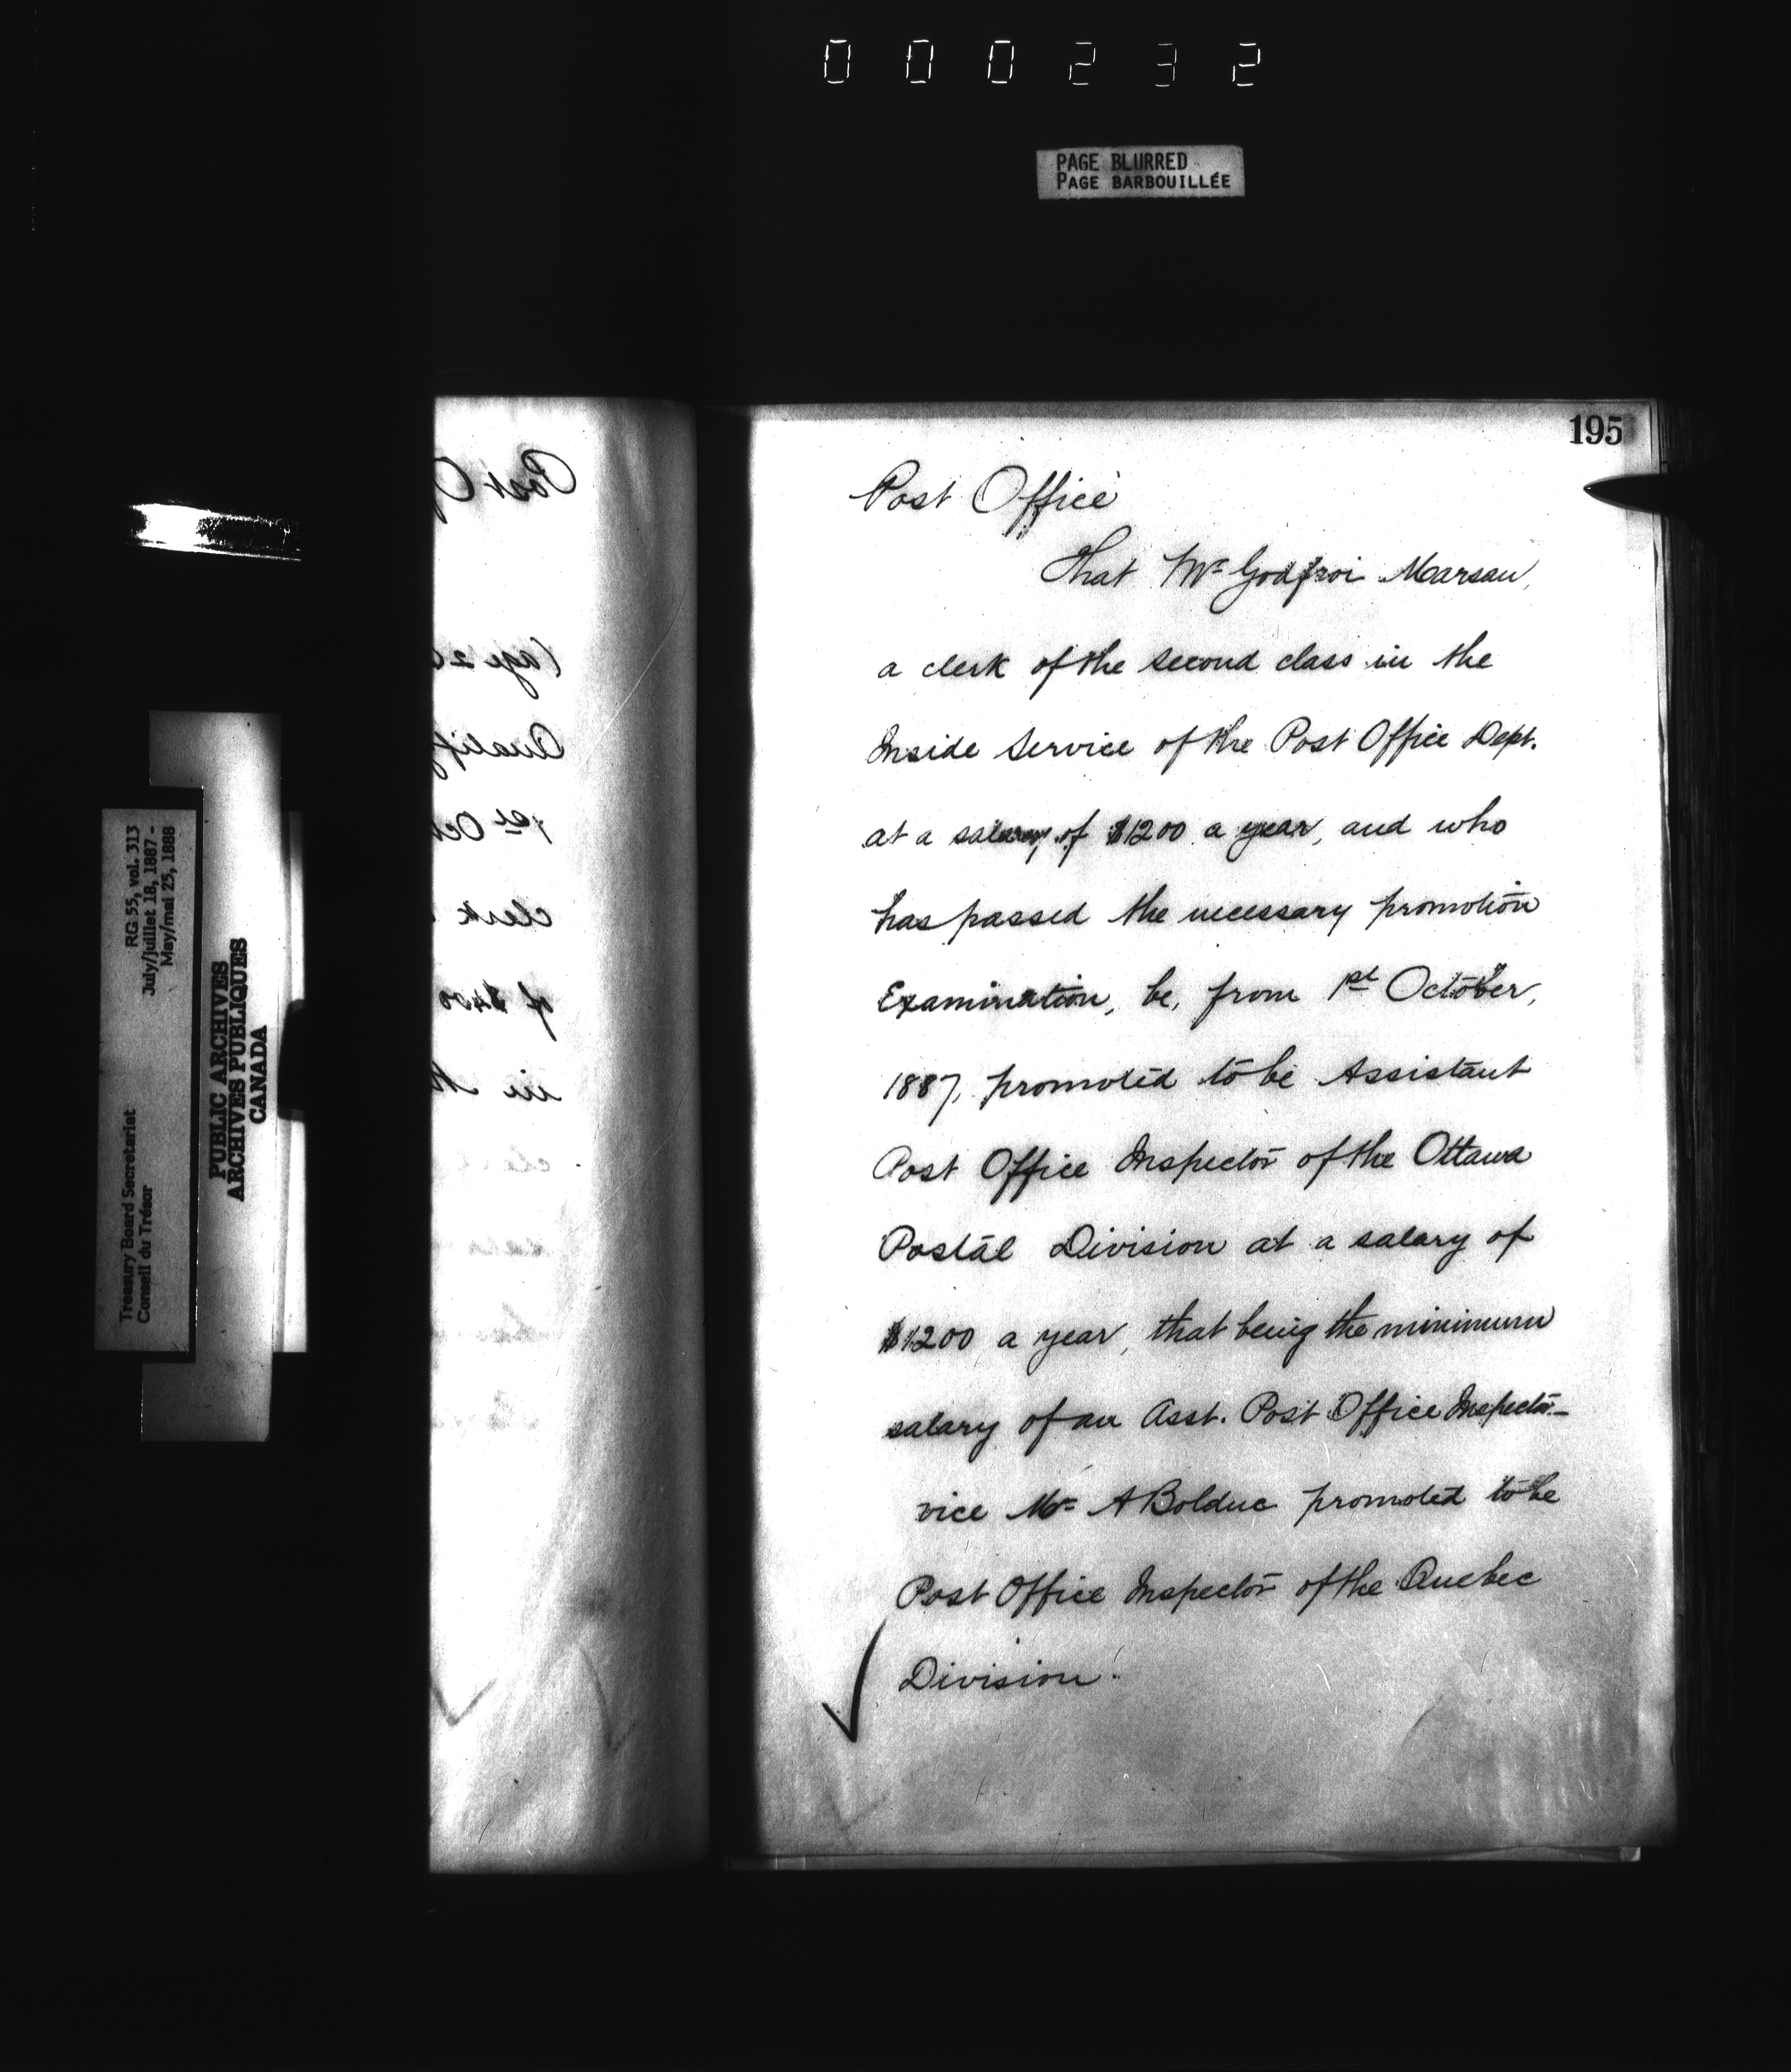 000232
PAGE BLURRED
PAGE BARBOUILLÉE
195
Post Office
That Mr Godfroi Marsan,
a clerk of the second class in the
Inside Service of the Post Office Dept.
at a salary of $1200 a year, and who
has passed the necessary promotion
Examination, be, from 1st October,
1887, promoted to be Assistant
Post Office Inspector of the Ottawa
Postal Division at a salary of
$1200 a year, that being the minimum
salary of an Asst. Post Office Inspector–
vice Mr A Bolduc promoted to be
Post Office Inspector of the Quebec
Division.
Treasury Board Secretariat
Conseil du Trésor
RG 55, vol. 313
July/juillet 18, 1887 -
May/mai 25, 1888
PUBLIC ARCHIVES
ARCHIVES PUBLIQUES
CANADA
Post O
(age 2
Qualif
1st Oct
clerk
of $400
in